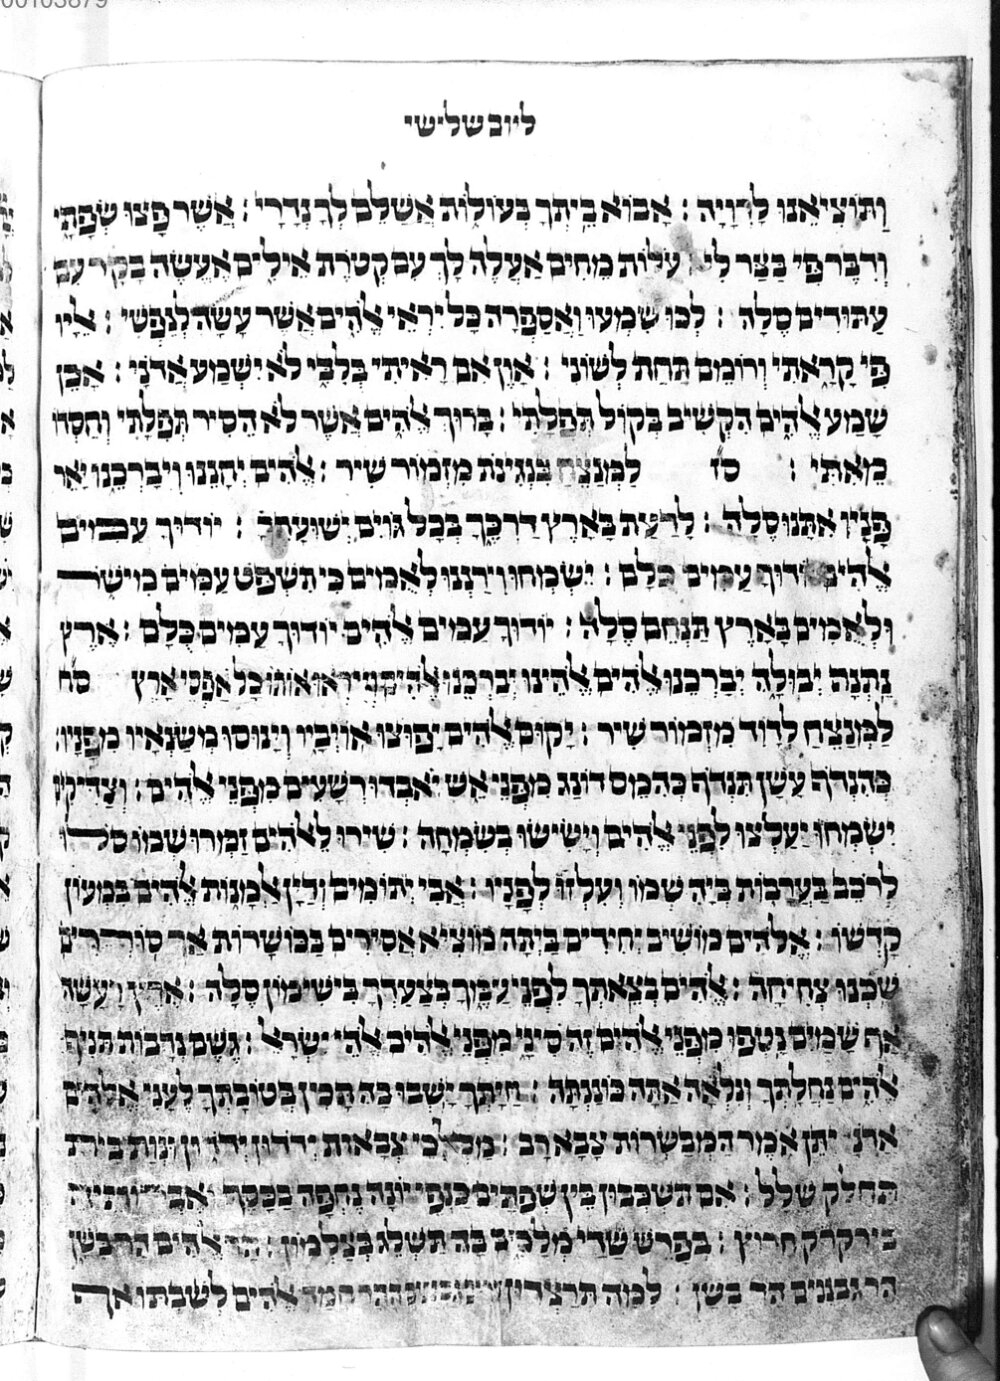 00103879
ליום שלישי
וַתּוֹצִיאֵנוּ לָרְוָיָה : אָבוֹא בֵיתְךָ בְעוֹלוֹת אֲשַׁלֵּם לְךָ נְדָרָי : אֲשֶׁר פָּצוּ שְׂפָתָי
וְדִבֶּר פִּי בַּצַּר לִי עֹלוֹת מֵחִים אַעֲלֶה לָּךְ עִם קְטֹרֶת אֵילִים אֶעֱשֶׂה בָקָר עִם
עַתּוּדִים סֶלָה : לְכוּ שִׁמְעוּ וַאֲסַפְּרָה כָּל יִרְאֵי אֱלֹהִים אֲשֶׁר עָשָׂה לְנַפְשִׁי : אֵלָיו
פִּי קָרָאתִי וְרוֹמַם תַּחַת לְשׁוֹנִי : אָוֶן אִם רָאִיתִי בְלִבִּי לֹא יִשְׁמַע אֲדֹנָי : אָכֵן
שָׁמַע אֱלֹהִים הִקְשִׁיב בְּקוֹל תְּפִלָּתִי : בָּרוּךְ אֱלֹהִים אֲשֶׁר לֹא הֵסִיר תְּפִלָּתִי וְחַסְדּוֹ
מֵאִתִּי : סז לַמְנַצֵּחַ בִּנְגִינֹת מִזְמוֹר שִׁיר : אֱלֹהִים יְחָנֵּנוּ וִיבָרְכֵנוּ יָאֵר
פָּנָיו אִתָּנוּ סֶלָה : לָדַעַת בָּאָרֶץ דַּרְכֶּךָ בְּכָל גּוֹיִם יְשׁוּעָתֶךָ : יוֹדוּךָ עַמִּים
אֱלֹהִים יוֹדוּךָ עַמִּים כֻּלָּם : יִשְׂמְחוּ וִירַנְּנוּ לְאֻמִּים כִּי תִשְׁפֹּט עַמִּים מִישֹׁר
וּלְאֻמִּים בָּאָרֶץ תַּנְחֵם סֶלָה : יוֹדוּךָ עַמִּים אֱלֹהִים יוֹדוּךָ עַמִּים כֻּלָּם : אֶרֶץ
נָתְנָה יְבוּלָהּ יְבָרְכֵנוּ אֱלֹהִים אֱלֹהֵינוּ יְבָרְכֵנוּ אֱלֹהִים וְיִירְאוּ אוֹתוֹ כָּל אַפְסֵי אָרֶץ סח
לַמְנַצֵּחַ לְדָוִד מִזְמוֹר שִׁיר : יָקוּם אֱלֹהִים יָפוּצוּ אוֹיְבָיו וְיָנוּסוּ מְשַׂנְאָיו מִפָּנָיו :
כְּהִנְדֹּף עָשָׁן תִּנְדֹּף כְּהִמֵּס דּוֹנַג מִפְּנֵי אֵשׁ יֹאבְדוּ רְשָׁעִים מִפְּנֵי אֱלֹהִים : וְצַדִּיקִים
יִשְׂמְחוּ יַעַלְצוּ לִפְנֵי אֱלֹהִים וְיָשִׂישׂוּ בְשִׂמְחָה : שִׁירוּ לֵאלֹהִים זַמְּרוּ שְׁמוֹ סֹלּוּ
לָרֹכֵב בָּעֲרָבוֹת בְּיָהּ שְׁמוֹ וְעִלְזוּ לְפָנָיו : אֲבִי יְתוֹמִים וְדַיַּן אַלְמָנוֹת אֱלֹהִים בִּמְעוֹן
קָדְשׁוֹ : אֱלֹהִים מוֹשִׁיב יְחִידִים בַּיְתָה מוֹצִיא אֲסִירִים בַּכּוֹשָׁרוֹת אַךְ סוֹרְרִים
שָׁכְנוּ צְחִיחָה : אֱלֹהִים בְּצֵאתְךָ לִפְנֵי עַמֶּךָ בְּצַעְדְּךָ בִישִׁימוֹן סֶלָה : אֶרֶץ רָעָשָׁה
אַף שָׁמַיִם נָטְפוּ מִפְּנֵי אֱלֹהִים זֶה סִינַי מִפְּנֵי אֱלֹהִים אֱלֹהֵי יִשְׂרָאֵל : גֶּשֶׁם נְדָבוֹת תָּנִיף
אֱלֹהִים נַחֲלָתְךָ וְנִלְאָה אַתָּה כוֹנַנְתָּהּ : חַיָּתְךָ יָשְׁבוּ בָהּ תָּכִין בְּטוֹבָתְךָ לֶעָנִי אֱלֹהִים
אֲדֹנָי יִתֶּן אֹמֶר הַמְבַשְּׂרוֹת צָבָא רָב : מַלְכֵי צְבָאוֹת יִדֹּדוּן יִדֹּדוּן וּנְוַת בַּיִת
תְּחַלֵּק שָׁלָל : אִם תִּשְׁכְּבוּן בֵּין שְׁפַתָּיִם כַּנְפֵי יוֹנָה נֶחְפָּה בַכֶּסֶף
בִּירַקְרַק חָרוּץ : בְּפָרֵשׂ שַׁדַּי מְלָכִים בָּהּ תַּשְׁלֵג בְּצַלְמוֹן : הַר אֱלֹהִים הַר בָּשָׁן
הַר גַּבְנֻנִּים הַר בָּשָׁן : לָמָּה תְּרַצְּדוּן אֱלֹהִים לְשִׁבְתּוֹ אַף